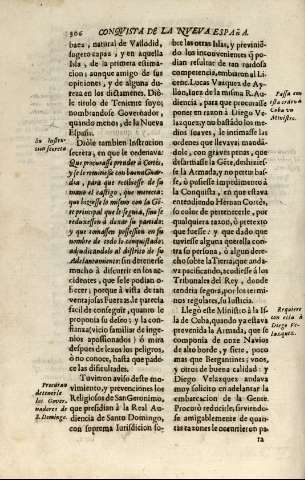 306 CONQUISTA DE LA NUEVA ESPAÑA.
baez, natural de Valladolid,
sugeto capaz, y en aquella
Isla, de la primera estima-
cion; aunque amigo de sus
opiniones, y de alguna du-
reza en los dictamenes. Diò-
le titulo de Teniente suyo;
nombrandose Governador,
quando menos, de la Nueva
España.
Su Instruc-
cion secreta.
Diòle tambien Instruccion
secreta, en que le ordenava:
Que procurasse prender à Cortès,
y se le remitiesse con buena Guar-
dia, para que recibiesse de su
mano el castigo, que merecia:
que hiziesse lo mismo con la Gē-
te principal que le seguia, si no se
reduxessen à dexar su partido:
y que tomassen possession en su
nombre de todo lo conquistado,
adjudicandolo al distrito de su
Adelantamiento: sin detenerse
mucho à discurrir en los ac-
cidentes, que se le podian o-
frecer; porque à vista de tan
ventajosas Fuerzas, le parecia
facil de conseguir, quanto le
proponia su deseo: y la con-
fianza (vicio familiar de inge-
nios apassionados) ò mira
despues de lexos los peligros,
ò no conoce, hasta que pade-
ce las dificultades.
Procuran
detenerle
los Gover-
nadores de
S. Domingo.
Tuvieron aviso deste mo-
vimiento, y prevenciones los
Religiosos de San Geronimo,
que presidian à la Real Au-
diencia de Santo Domingo,
con suprema Jurisdicion so-
bre las otras Islas, y previniē-
do los inconvenientes q̄ po-
dian resultar de tan ruidosa
competencia, embiaron al Li-
cenc. Lucas Vazquez de Ay-
llon, Juez de la misma R. Au-
diencia, para que procurasse
poner en razon à Diego Ve-
lazquez, y no bastādo los me-
dios suaves, le intimasse las
ordenes que llevava, mandan-
dole, con graves penas, que
desarmasse la Gēte, deshiziesse
la Armada, y no pertur-
basse, ò pusiesse impedimento à
la Conquista, en que estava
entendiendo Hernan Cortès,
so color de pertenecerle, por
qualquiera razon, ò pretexto
que fuesse: y que dado que
tuviesse alguna querella con-
tra su persona, ò algun dere-
cho sobre la Tierra, que anda-
va pacificando, acudiesse à los
Tribunales del Rey, donde
tendria segura, por los termi-
nos regulares, su Justicia.
Passa con
esta orden à
Cuba un
Ministro.
Llegò este Ministro à la Is-
la de Cuba, quando yà estava
prevenida la Armada, que se
componia de onze Navios
de alto borde, y siete, poco
mas que Bergantines; unos,
y otros de buena calidad: y
Diego Velazquez andava
muy solicito en adelantar la
embarcacion de la Gente.
Procurò reducirle, sirviendo-
se amigablemente de quan-
tas razones le ocurrieron pa-
Requiere
con ella à
Diego Ve-
lazquez.
ra